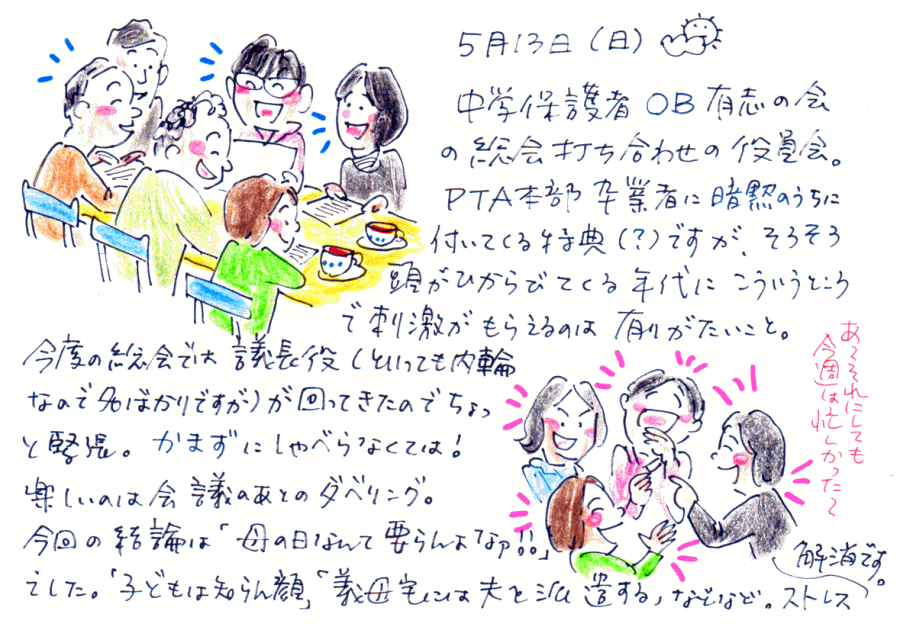 5月13日(日)
中学保護者OB有志の会
の総会打ち合わせの役員会。
PTA本部卒業者に暗黙のうちに
付いてくる特典(?)ですが、そろそろ
頭がひからびてくる年代にこういうところ
で刺激がもらえるのは有りがたいこと。
今度の総会では議長役(といっても内輪
なので名ばかりですが)が回ってきたのでちょっ
と緊張。かまずにしゃべらなくては!
楽しいのは会議のあとのダベリング。
今回の結論は「母の日なんて要らんよなァ!!」
でした。「子どもは知らん顔」「義母宅には夫と派遣する」などなど。ストレス
解消です。
あ〜それにしても
今週は忙しかった〜